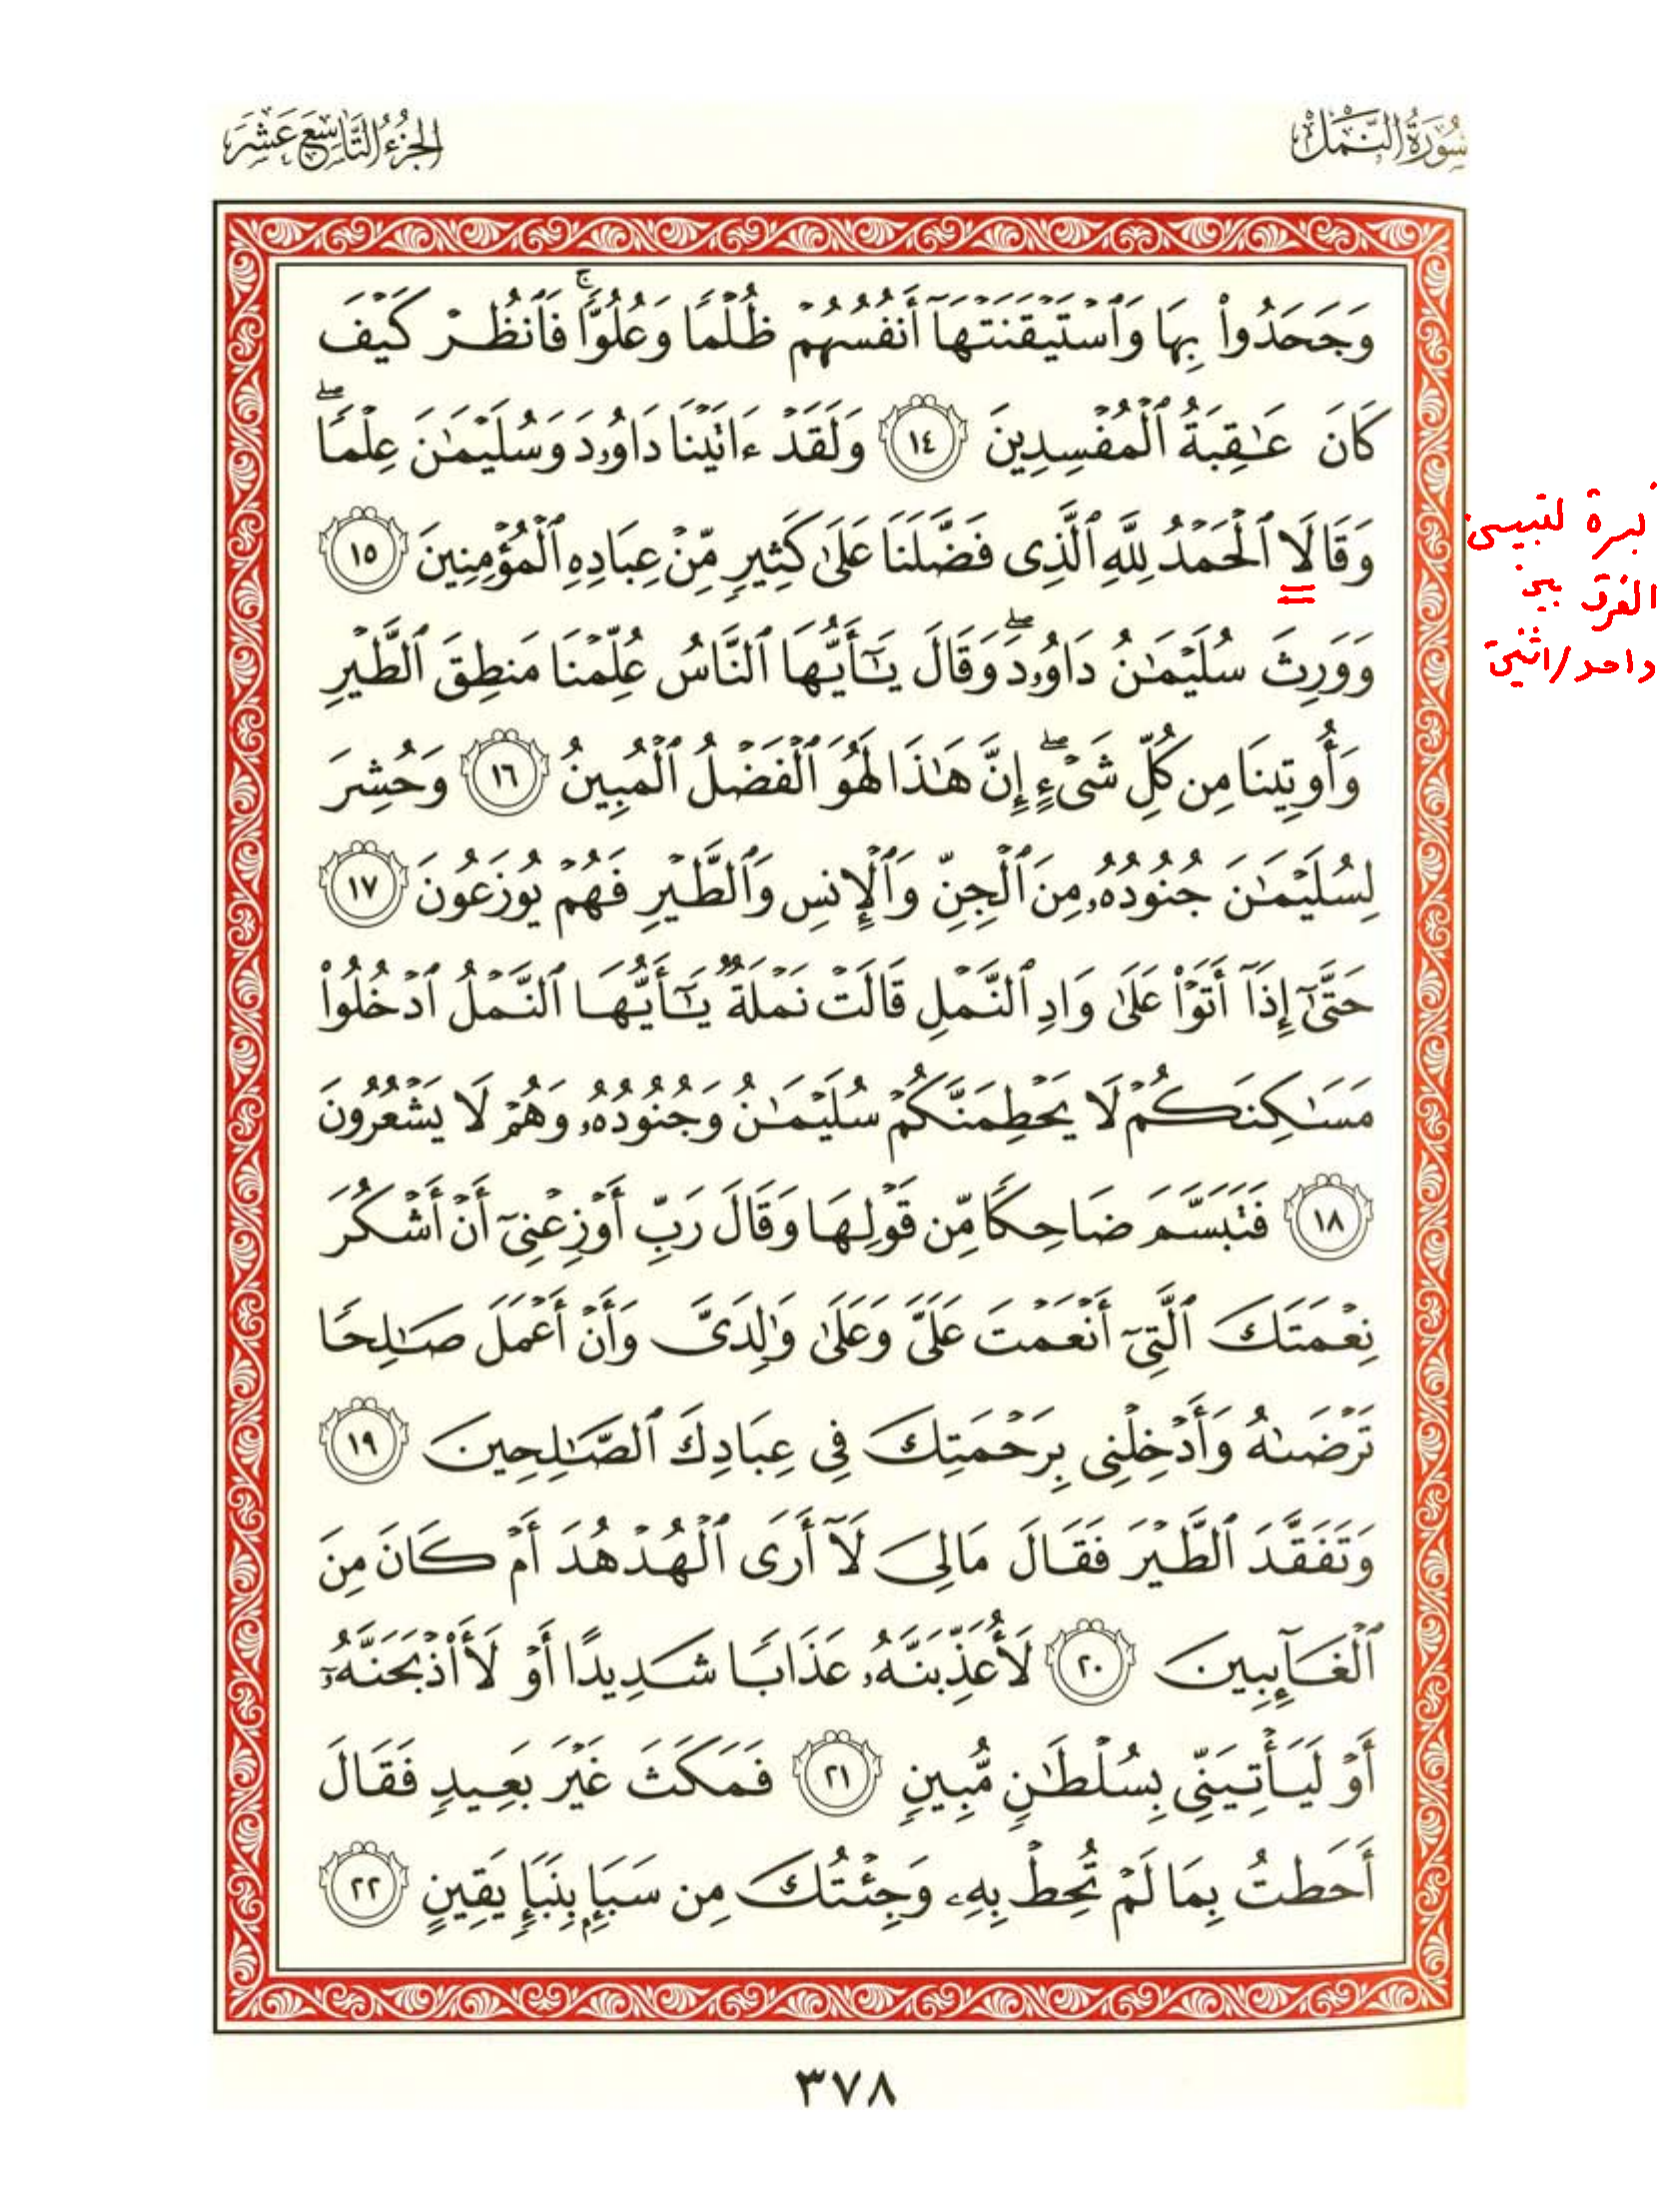 سُورَةُ النَّمْلِ
الجُزْءُ التَّاسِعَ عَشَرَ
وَجَحَدُوا۟ بِهَا وَٱسْتَيْقَنَتْهَآ أَنفُسُهُمْ ظُلْمًا وَعُلُوًّا ۚ فَٱنظُرْ كَيْفَ
كَانَ عَـٰقِبَةُ ٱلْمُفْسِدِينَ ١٤ وَلَقَدْ ءَاتَيْنَا دَاوُۥدَ وَسُلَيْمَـٰنَ عِلْمًا ۖ
وَقَالَا ٱلْحَمْدُ لِلَّهِ ٱلَّذِى فَضَّلَنَا عَلَىٰ كَثِيرٍ مِّنْ عِبَادِهِ ٱلْمُؤْمِنِينَ ١٥
وَوَرِثَ سُلَيْمَـٰنُ دَاوُۥدَ ۖ وَقَالَ يَـٰٓأَيُّهَا ٱلنَّاسُ عُلِّمْنَا مَنطِقَ ٱلطَّيْرِ
وَأُوتِينَا مِن كُلِّ شَىْءٍ ۖ إِنَّ هَـٰذَا لَهُوَ ٱلْفَضْلُ ٱلْمُبِينُ ١٦ وَحُشِرَ
لِسُلَيْمَـٰنَ جُنُودُهُۥ مِنَ ٱلْجِنِّ وَٱلْإِنسِ وَٱلطَّيْرِ فَهُمْ يُوزَعُونَ ١٧
حَتَّىٰٓ إِذَآ أَتَوْا۟ عَلَىٰ وَادِ ٱلنَّمْلِ قَالَتْ نَمْلَةٌ يَـٰٓأَيُّهَا ٱلنَّمْلُ ٱدْخُلُوا۟
مَسَـٰكِنَكُمْ لَا يَحْطِمَنَّكُمْ سُلَيْمَـٰنُ وَجُنُودُهُۥ وَهُمْ لَا يَشْعُرُونَ
١٨ فَتَبَسَّمَ ضَاحِكًا مِّن قَوْلِهَا وَقَالَ رَبِّ أَوْزِعْنِىٓ أَنْ أَشْكُرَ
نِعْمَتَكَ ٱلَّتِىٓ أَنْعَمْتَ عَلَىَّ وَعَلَىٰ وَٰلِدَىَّ وَأَنْ أَعْمَلَ صَـٰلِحًا
تَرْضَىٰهُ وَأَدْخِلْنِى بِرَحْمَتِكَ فِى عِبَادِكَ ٱلصَّـٰلِحِينَ ١٩
وَتَفَقَّدَ ٱلطَّيْرَ فَقَالَ مَالِىَ لَآ أَرَى ٱلْهُدْهُدَ أَمْ كَانَ مِنَ
ٱلْغَآئِبِينَ ٢٠ لَأُعَذِّبَنَّهُۥ عَذَابًا شَدِيدًا أَوْ لَأَا۟ذْبَحَنَّهُۥٓ
أَوْ لَيَأْتِيَنِّى بِسُلْطَـٰنٍ مُّبِينٍ ٢١ فَمَكَثَ غَيْرَ بَعِيدٍ فَقَالَ
أَحَطتُ بِمَا لَمْ تُحِطْ بِهِۦ وَجِئْتُكَ مِن سَبَإٍۭ بِنَبَإٍ يَقِينٍ ٢٢
٣٧٨
نبرة لتبيين
الفرق بين
واحد/اثنين